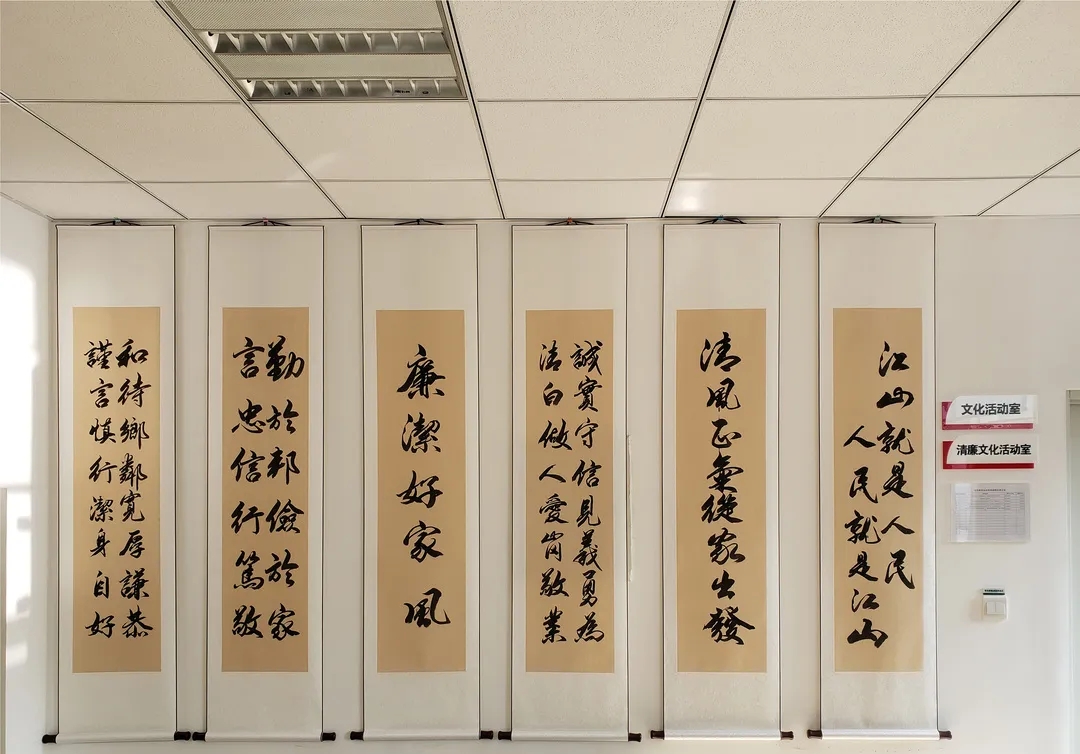 江山就是人民
人民就是江山
清風正氣從家出發
誠實守信見義勇為
清白做人愛崗敬業
廉潔好家風
勤於邦儉於家
言忠信行篤敬
和待鄉鄰寬厚謙恭
謹言慎行潔身自好
文化活动室
清廉文化活动室